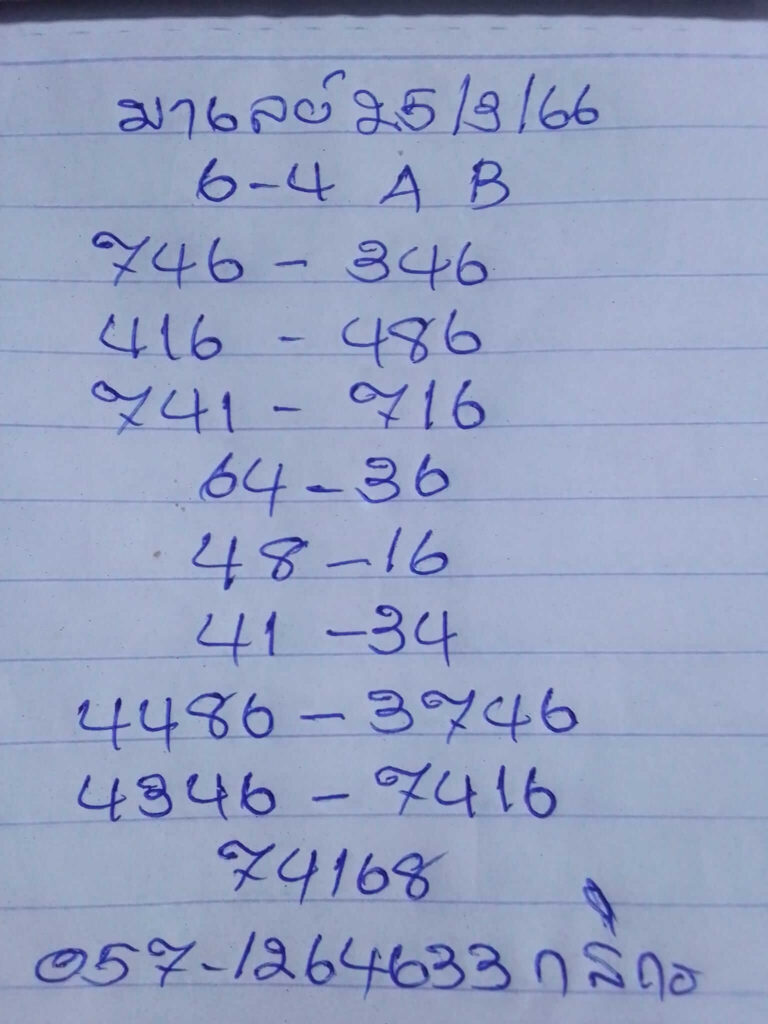 มาเลย์ 25/3/66
6-4 A B
746 - 346
416 - 486
741 - 716
64 - 36
48 - 16
41 - 34
4486 - 3746
4346 - 7416
74168
057-1264633 กสิกร